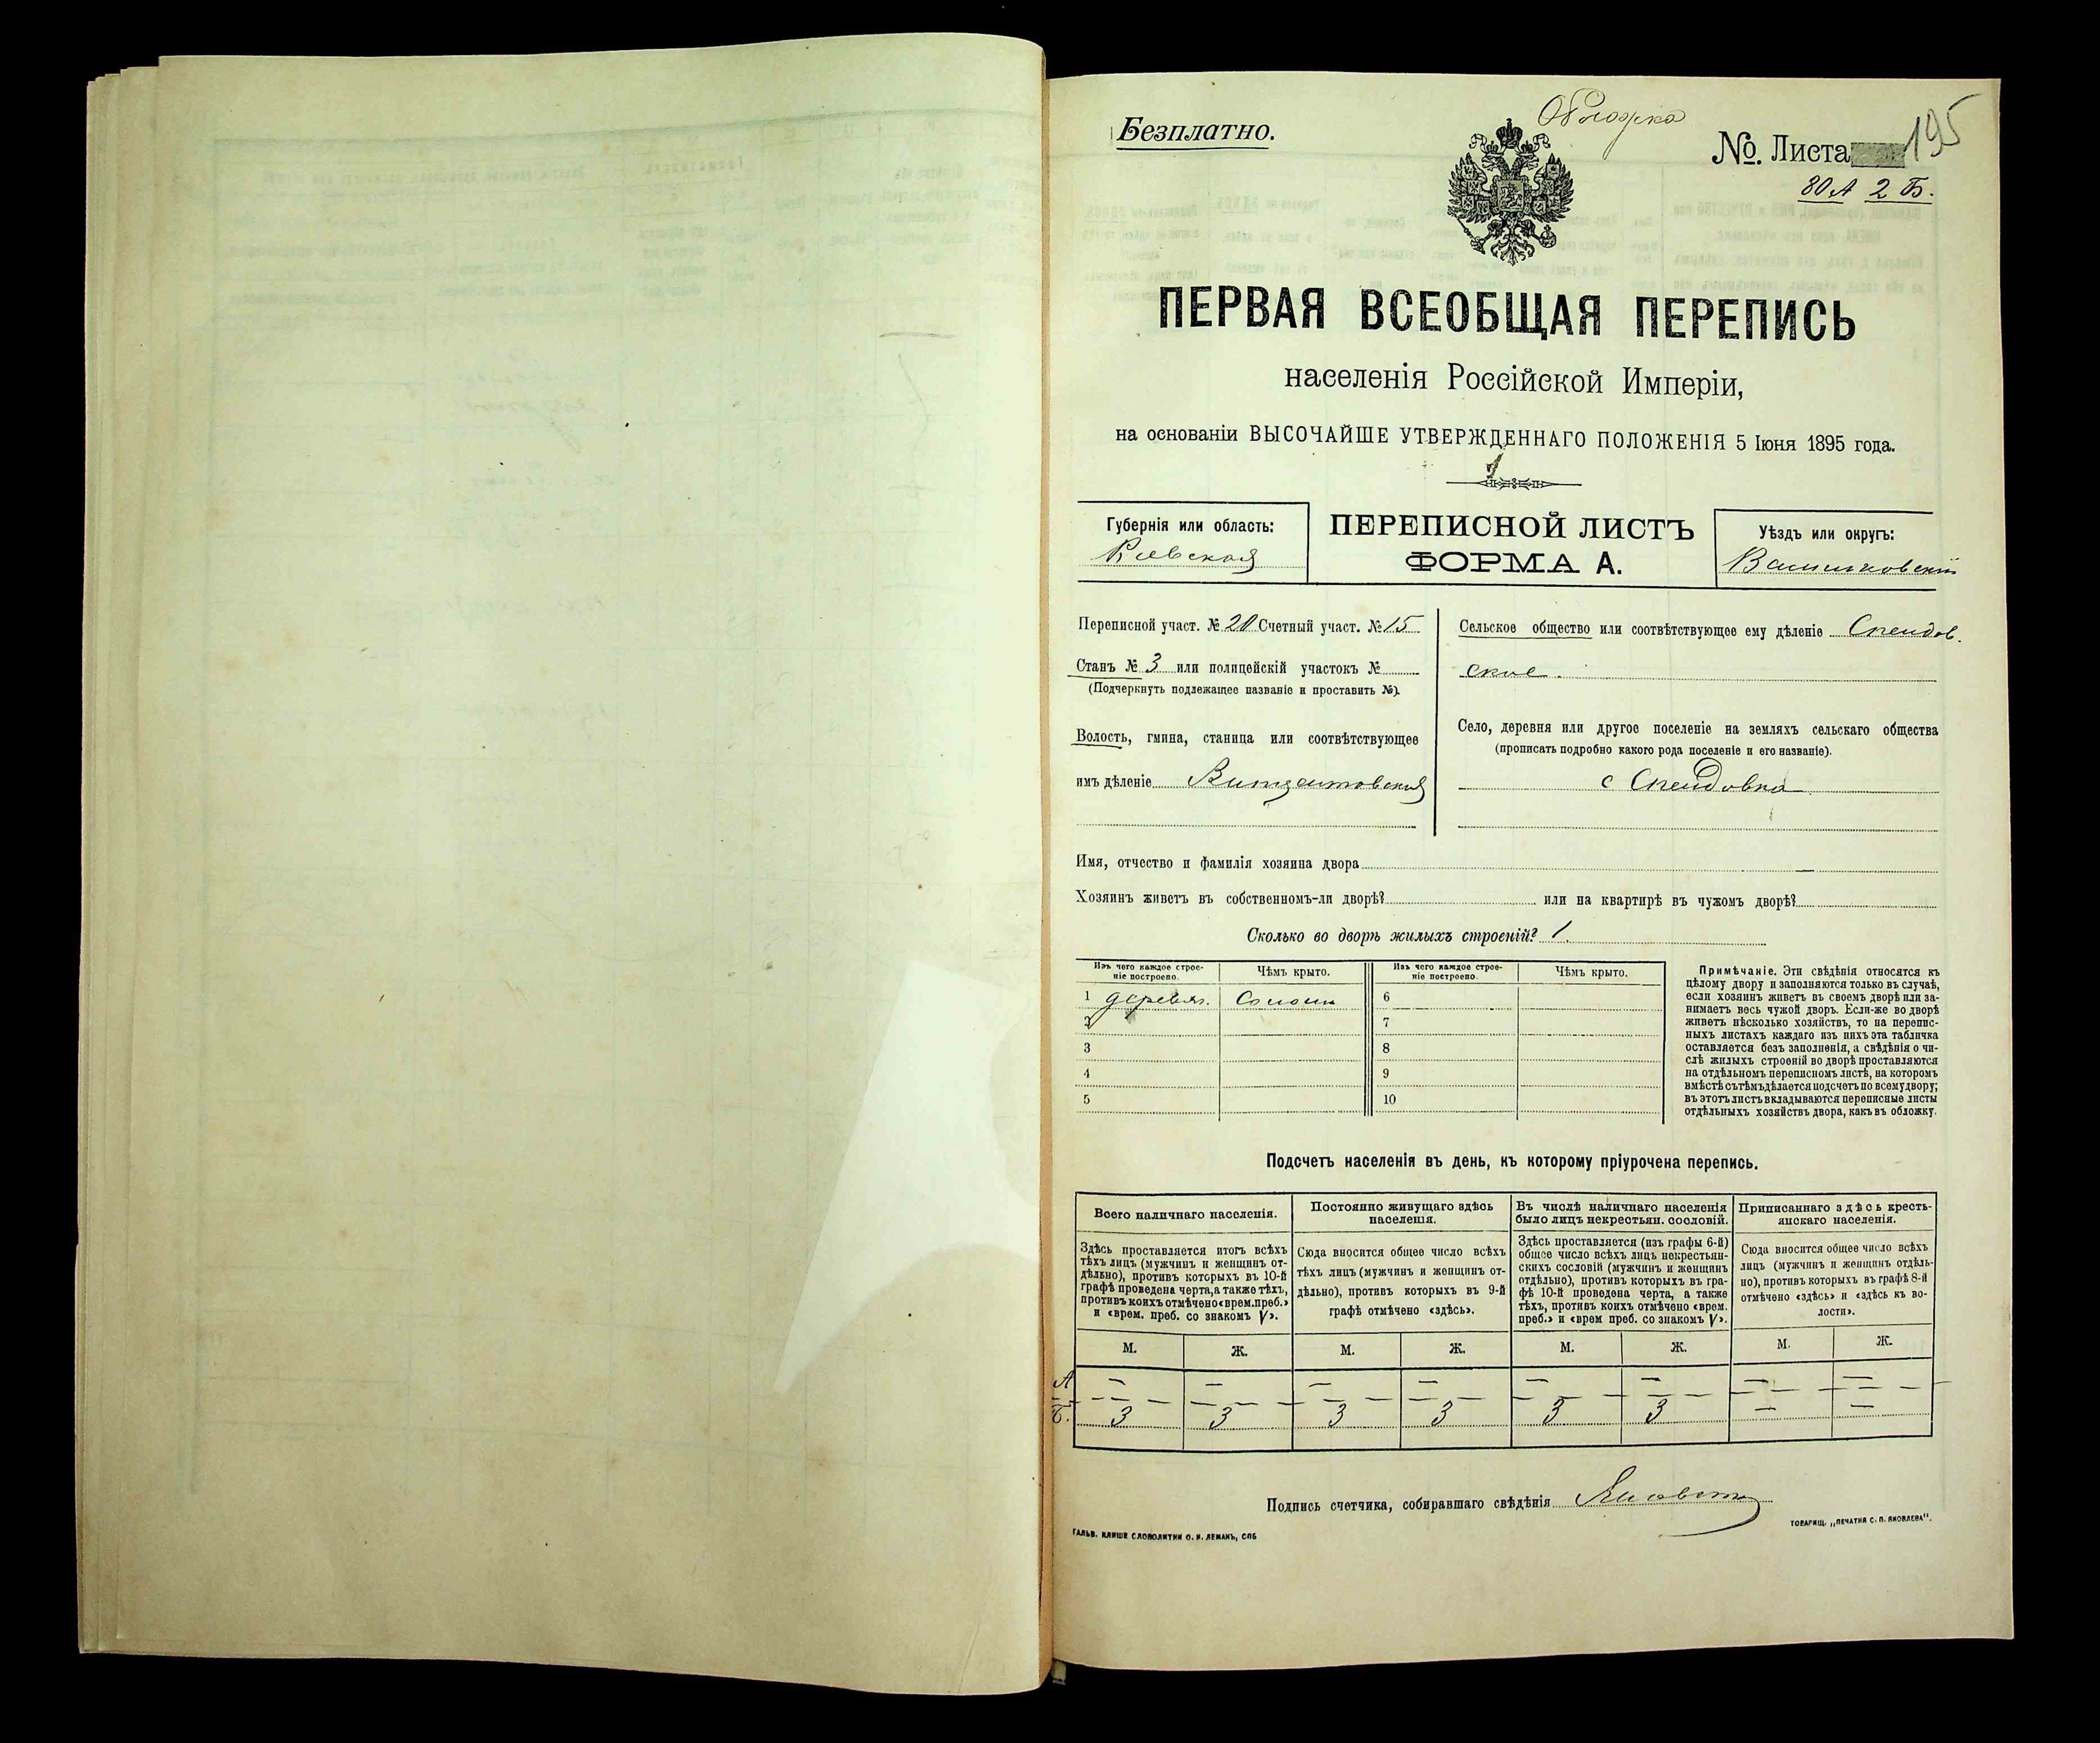 Безплатно.
Обложка
№. Листа 195
80 А 2 Б.
ПЕРВАЯ ВСЕОБЩАЯ ПЕРЕПИСЬ
населенія Россійской Имперіи,
на основаніи ВЫСОЧАЙШЕ УТВЕРЖДЕННАГО ПОЛОЖЕНІЯ 5 Іюня 1895 года.
Губернія или область:
Кіевская
ПЕРЕПИСНОЙ ЛИСТЪ
ФОРМА А.
Уѣздъ или округъ:
Васильковскій
Переписной участ. № 20 Счетный участ. № 15
Станъ № 3 или полицейскій участокъ №
(Подчеркнуть подлежащее названіе и проставить №).
Волость, гмина, станица или соотвѣтствующее
имъ дѣленіе
Сельское общество или соотвѣтствующее ему дѣленіе Спендов-
ское.
Село, деревня или другое поселеніе на земляхъ сельскаго общества
(прописать подробно какого рода поселеніе и его названіе).
с Спендовка
Имя, отчество и фамилія хозяина двора
Хозяинъ живетъ въ собственномъ-ли дворѣ? или на квартирѣ въ чужомъ дворѣ?
Сколько во дворѣ жилыхъ строеній? 1.
Изъ чего каждое строе-
ніе построено.
Чѣмъ крыто.
Изъ чего каждое строе-
ніе построено.
Чѣмъ крыто.
1 деревян. Солом 6
2 7
3 8
4 9
5 10
Примѣчаніе. Эти свѣдѣнія относятся къ
цѣлому двору и заполняются только въ случаѣ,
если хозяинъ живетъ въ своемъ дворѣ или за-
нимаетъ весь чужой дворъ. Если-же во дворѣ
живетъ нѣсколько хозяйствъ, то на перепис-
ныхъ листахъ каждаго изъ нихъ эта табличка
оставляется безъ заполненія, а свѣдѣнія о чи-
слѣ жилыхъ строеній во дворѣ проставляются
на отдѣльномъ переписномъ листѣ, на которомъ
вмѣстѣ съ тѣмъ дѣлается подсчетъ по всему двору;
въ этотъ листъ вкладываются переписные листы
отдѣльныхъ хозяйствъ двора, какъ въ обложку.
Подсчетъ населенія въ день, къ которому пріурочена перепись.
Всего наличнаго населенія.
Здѣсь проставляется итогъ всѣхъ
тѣхъ лицъ (мужчинъ и женщинъ от-
дѣльно), противъ которыхъ въ 10-й
графѣ проведена черта, а также тѣхъ,
противъ коихъ отмѣчено «врем. преб.»
и «врем. преб. со знакомъ V».
Постоянно живущаго здѣсь
населенія.
Сюда вносится общее число всѣхъ
тѣхъ лицъ (мужчинъ и женщинъ от-
дѣльно), противъ которыхъ въ 9-й
графѣ отмѣчено «здѣсь».
Въ числѣ наличнаго населенія
было лицъ некрестьян. сословій.
Здѣсь проставляется (изъ графы 6-й)
общее число всѣхъ лицъ некрестьян-
скихъ сословій (мужчинъ и женщинъ
отдѣльно), противъ которыхъ въ гра-
фѣ 10-й проведена черта, а также
тѣхъ, противъ коихъ отмѣчено «врем.
преб.» и «врем преб. со знакомъ V».
Приписаннаго здѣсь кресть-
янскаго населенія.
Сюда вносится общее число всѣхъ
лицъ (мужчинъ и женщинъ отдѣль-
но), противъ которыхъ въ графѣ 8-й
отмѣчено «здѣсь» и «здѣсь къ во-
лости».
М. Ж. М. Ж. М. Ж. М. Ж.
А — — — — — — — —
Б. 3 3 3 3 3 3 — —
Подпись счетчика, собиравшаго свѣдѣнія
ГАЛЬВ. КЛИШЕ СЛОВОЛИТНИ О. И. ЛЕМАНЪ, СПБ
ТОВАРИЩ. „ПЕЧАТНЯ С. П. ЯКОВЛЕВА".